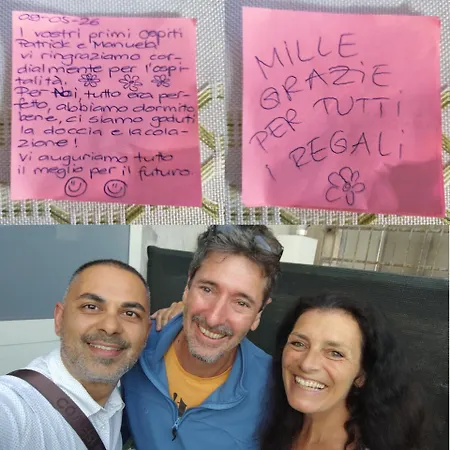 09-05-26
I vostri primi ospiti
Patrick e Manuela
vi ringraziamo cor-
dialmente per l'ospi-
talità.
Per Noi, tutto era per-
fetto, abbiamo dormito
bene, ci siamo goduti
la doccia e la cola-
zione!
Vi auguriamo tutto
il meglio per il futuro
MILLE
GRAZIE
PER TUTTI
I REGALI